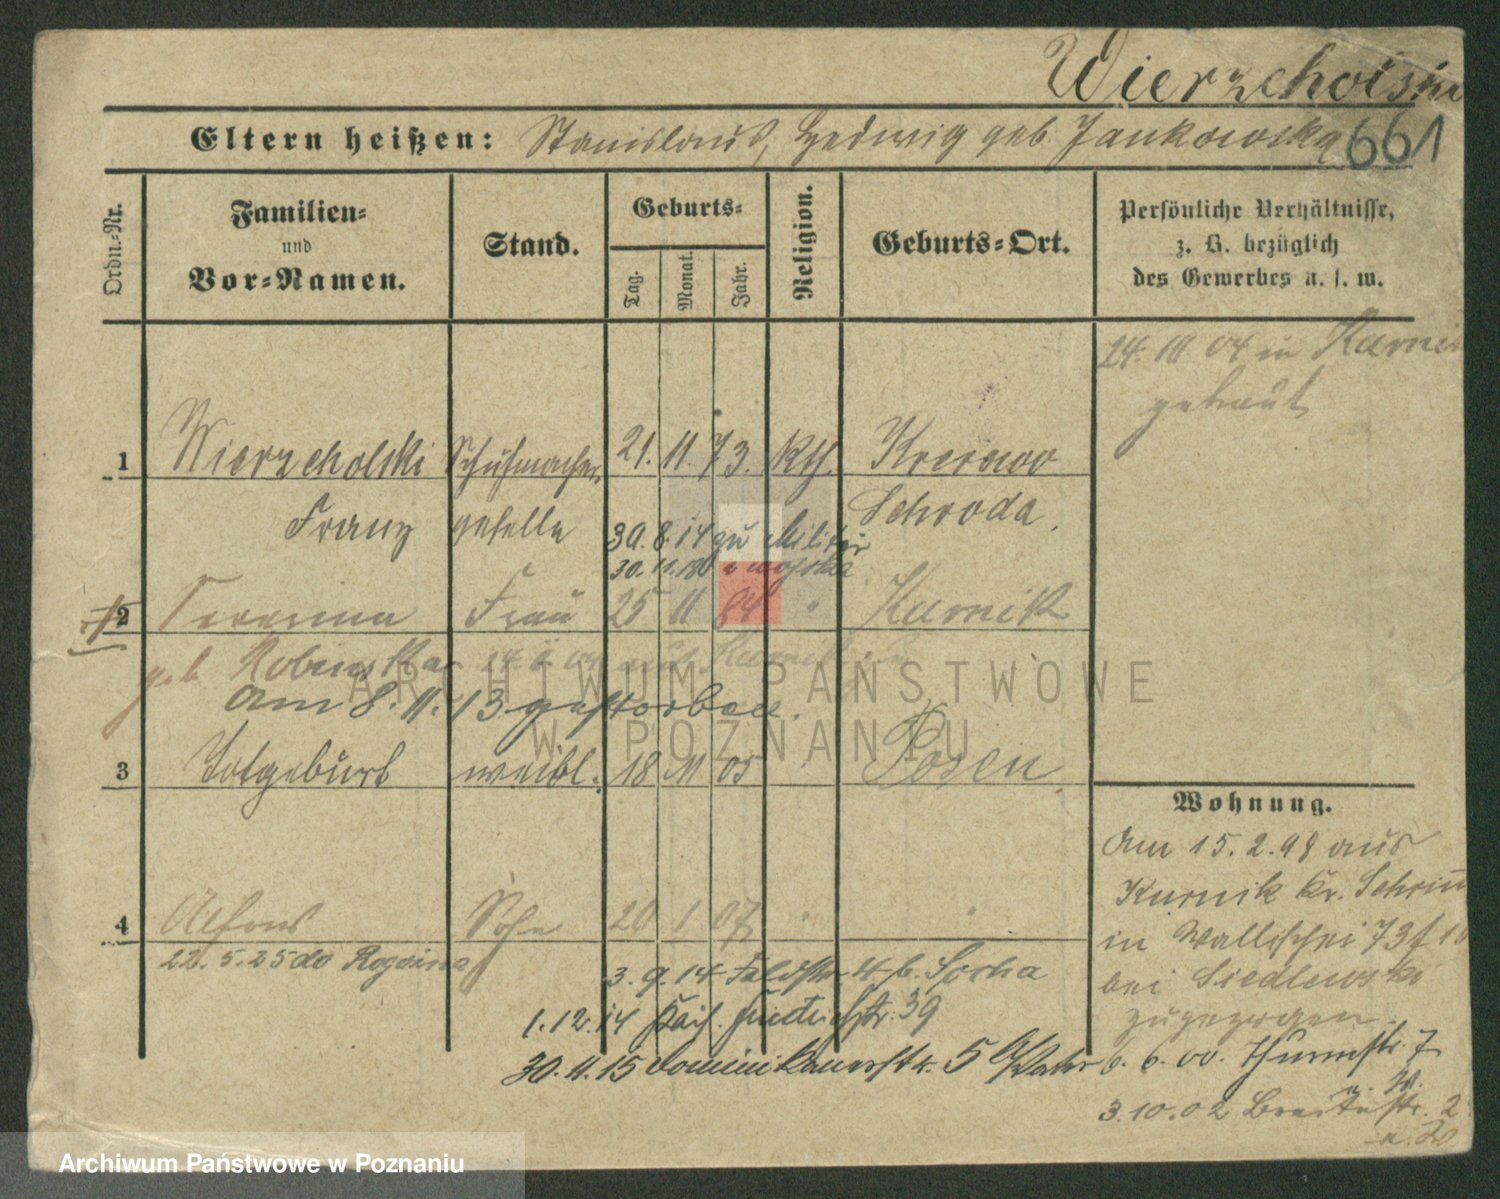 Wierzcholski
Eltern heißen: Stanislaus, Hedwig geb. Jankowska 661
Ordn.-Nr.
Familien-
und
Vor-Namen.
Stand.
Geburts-
Tag.
Monat.
Jahr.
Religion.
Geburts-Ort.
Persönliche Verhältnisse,
z. B. bezüglich
des Gewerbes u. s. w.
24. 10. 04 in Kurnik
getraut
1 Wierzcholski Schuhmacher 21. 11. 73. kth. Krerowo
Franz geselle Schroda.
30. 8. 14 zu Militär
30. 11. 18 z wojska
2 Severina Frau 25 11 84 " Kurnik
geb. Robinska
am 8. 11. 13 gestorben.
3 Totgeburt weibl. 18 11 05 Posen
4 Alfons Sohn 20 1 07 " "
22. 5. 25 do
3. 9. 14 Feldstr. 4 b. Socha
1. 12. 14 Kais. Friedrichstr. 39
30. 11. 15 Dominikanerstr. 5
Wohnung.
Am 15. 2. 98 aus
Kurnik Kr. Schrim
in Wallischei 73
bei Siedlewski
zugezogen.
6. 6. 00. Thurmstr. 7
3. 10. 02 Breitestr. 2
ARCHIWUM PAŃSTWOWE
W POZNANIU
Archiwum Państwowe w Poznaniu